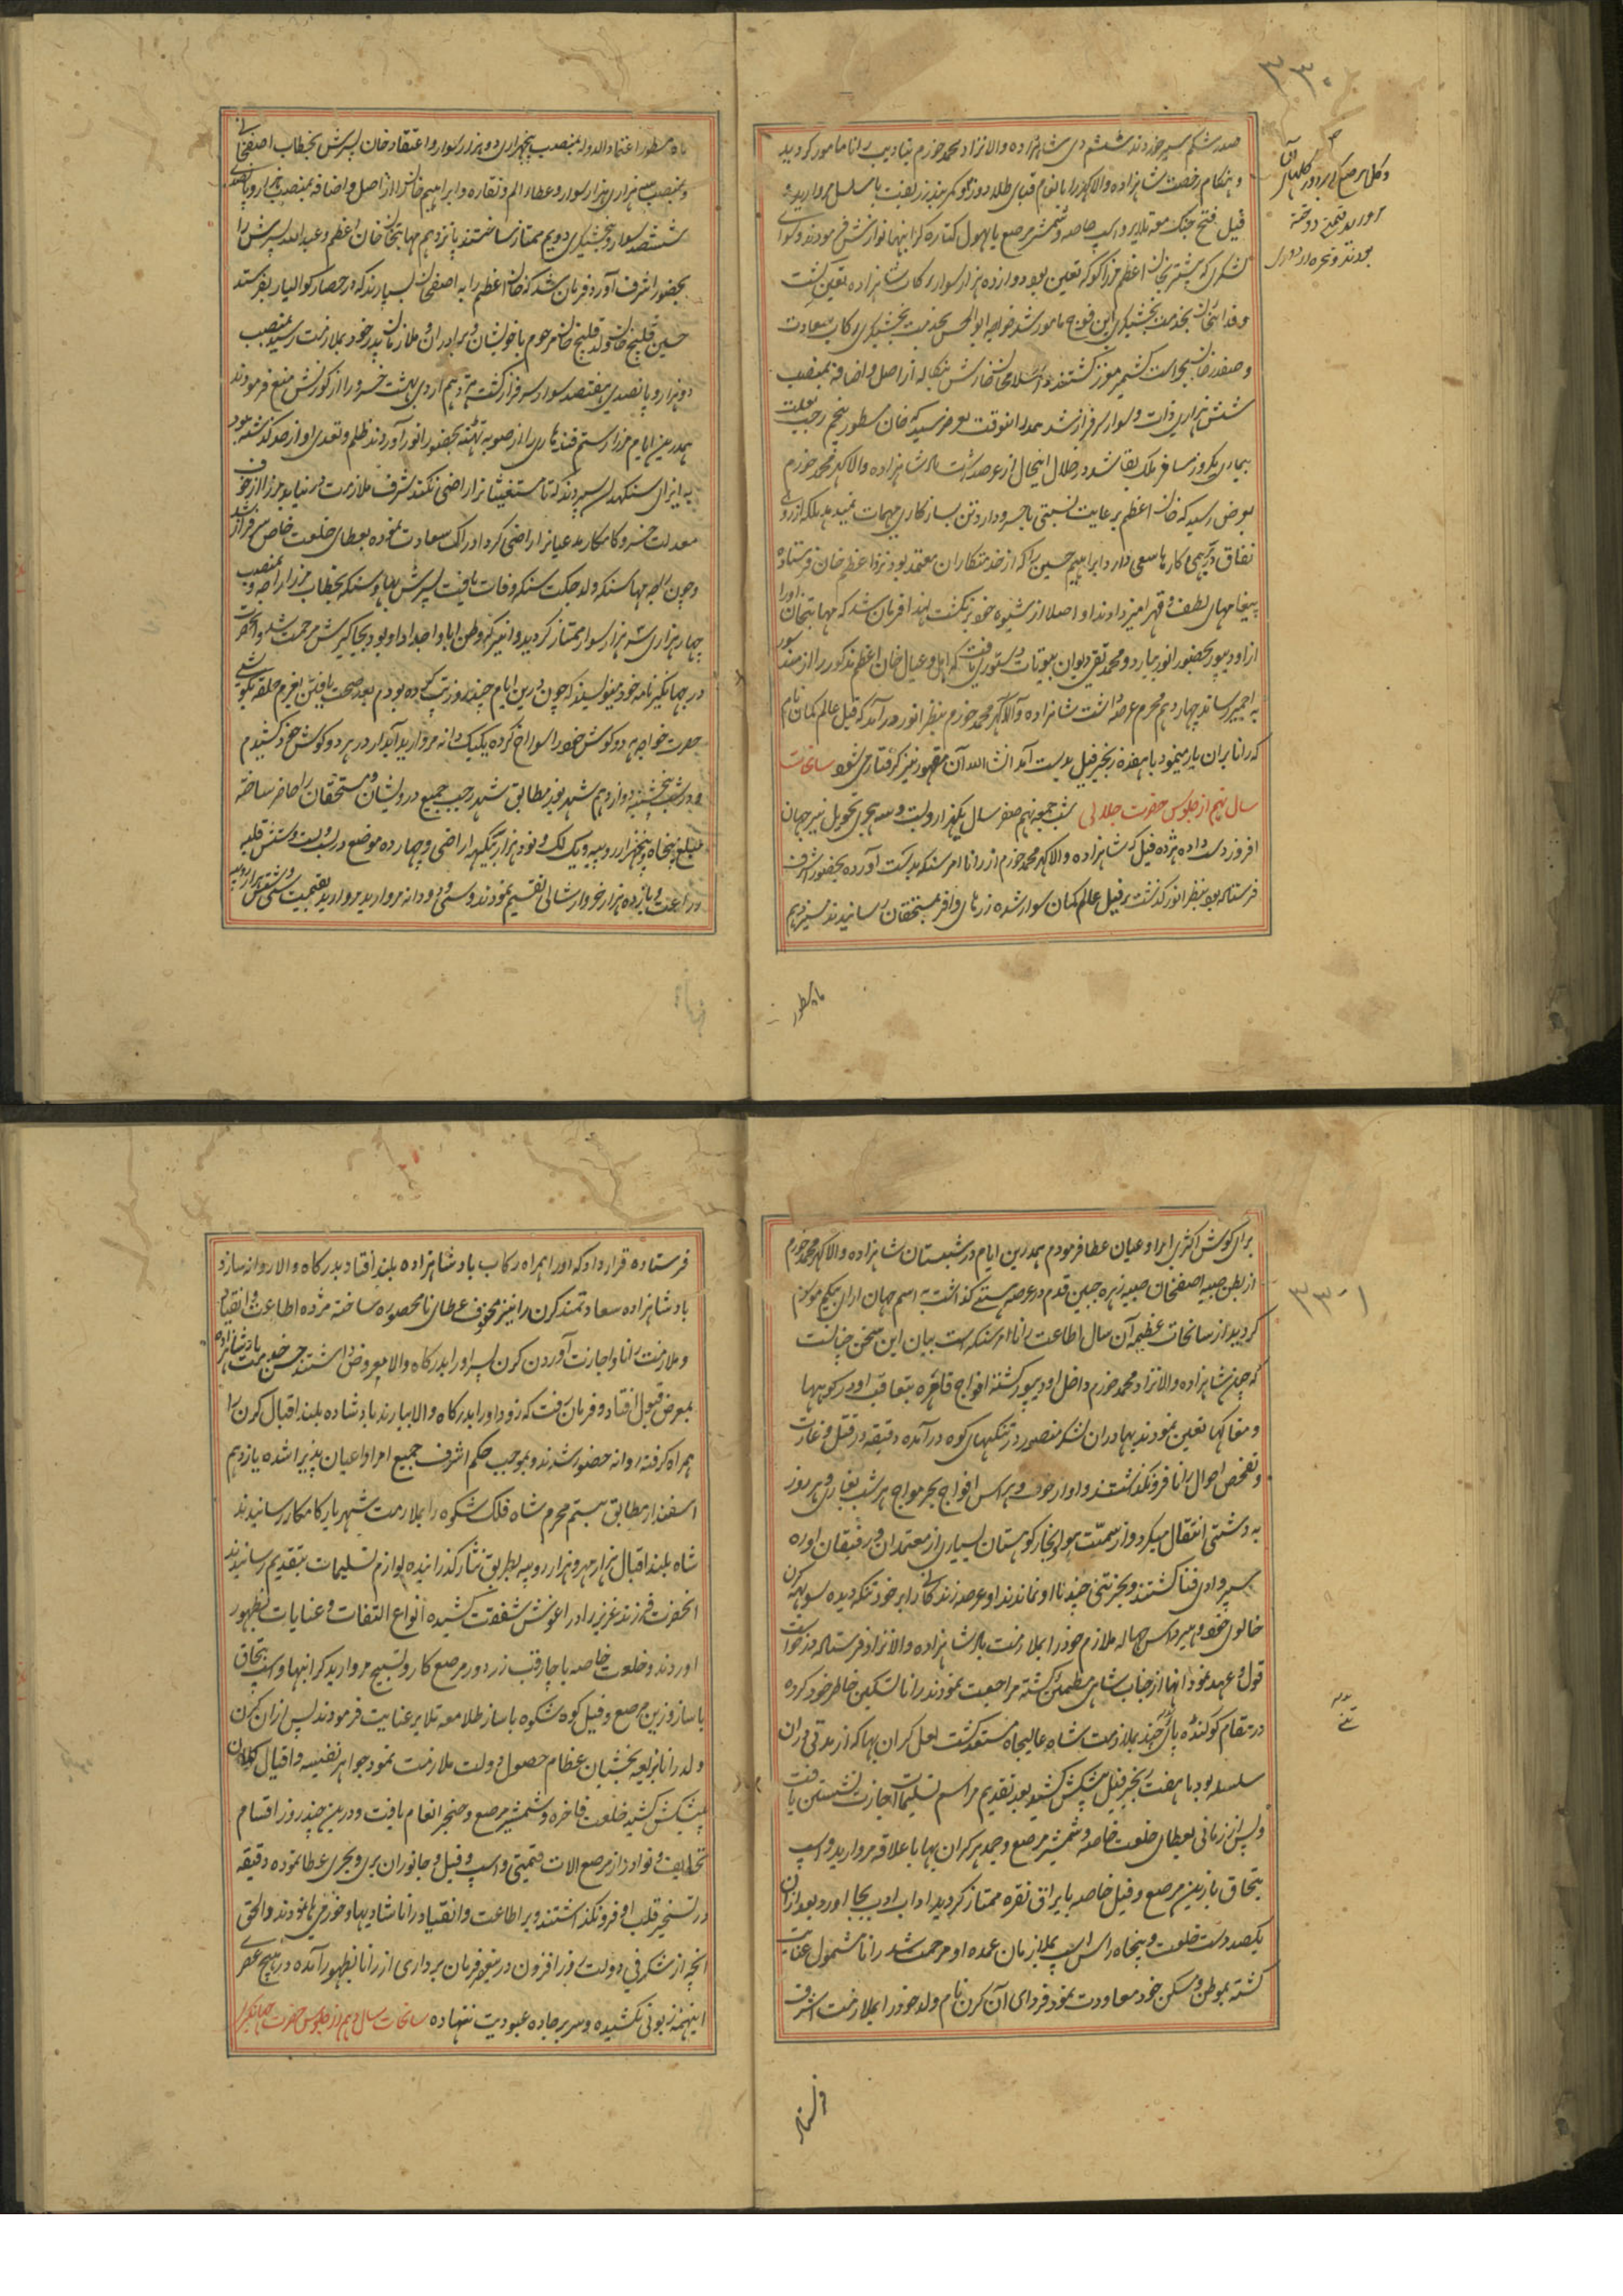 ۳۳۰
صدر شکم سیر خوردند ششم دی شاهزاده والانژاد محمد خورم بتادیب رانا مامور گردید
و هنگام رخصت شاهزاده والاگهر را بانعام قبای طلادوز
فیل فتح جنک معه تلایر و اسپ خاصه و شمشیر مرصع با پهول کتاره گرانبها نوازش فرمودند و سوای
لشکری که پیشتر بخان اعظم مرزا کوکه تعین بود دوازده هزار سوار در رکاب شاهزاده تعین گشت
و فدائیخان بخدمت بخشیگری این فوج مامور شد خواجه ابوالحسن بخدمت بخشیگری رکاب سعادت
و صفدر خان بحراست کشمیر معزز گشتند و اسلامخان بنگاله از اصل و اضافه بمنصب
شش هزاری ذات و سوار سرفراز شد همدر انوقت بعرض رسید که خان مسطور پنجم رجب بعلت
بیماری یکروز مسافر ملک بقا شد در خلال اینحال از عرضداشت شاهزاده والاگهر محمد خورم
بعرض رسید که خان اعظم برعایت نسبتی با خسرو دارد تن بسازکاری مهمات نمیدهد بلکه از روی
نفاق در برهمی کارها سعی دارد ابراهیم حسین را که از خدمتکاران معتمد بود نزد اعظم خان فرستاده
پیغامهای لطف و قهر امیز دادند او اصلا از شیوه خود برنگشت لهذا فرمان شد که مهابتخان او را
از اودیپور بحضور انور بیارد و محمد تقی دیوان بیوتات دستوری یافت که اهل و عیال خان اعظم مذکور را از مندسور
به اجمیر رساند چهاردهم محرم عرضداشت شاهزاده والاگهر محمد خورم بنظر انور درآمد که فیل عالم کمان نام
که رانا بران پار مینمود با هفده زنجیر فیل بدست آمد انشا الله آن مقهور نیز گرفتار می شود سانحات
سال نهم از جلوس حضرت جلالی شب جمعه نهم صفر سال یکهزار و بیست و سه هجری تحویل نیر جهان
افروز دست داده هژده فیل که شاهزاده والاگهر محمد خورم از رانا امر سنکه بدست آورده بحضور اشرف
فرستاده بود بنظر انور گذشت بر فیل عالم کمان سوار شده زرهای وافر بمستحقان رسانیدند سیزدهم
ماه مسطور
ماه مسطور اعتماد الدوله بمنصب پنجهزاری دو هزار سوار و اعتقاد خان پسرش بخطاب اصفخانی
و بمنصب سه هزاری هزار سوار و عطاء علم و نقاره و ابراهیم خان را از اصل و اضافه بمنصب هزار و پانصدی
ششصد سوار و بخشیگری دویم ممتاز ساختند پانزدهم مهابتخان خان اعظم و عبدالله پسرش را
بحضور اشرف آورد فرمان شد که خان اعظم را به اصفخان بسپارند که در حصار کوالیار بفرستد
حسین قلیچ خان ولد قلیچ خان مرحوم با خویشان و برادران و ملازمان پدر خود بملازمت رسید بمنصب
دو هزار و پانصدی هفتصد سوار سرفراز گشت هژدهم اردی بهشت خسرو را از کورنش منع فرمودند
همدرین ایام مرزا رستم قندهاری را از صوبه تهته بحضور انور آوردند ظلم و تعدی او از حد گذشته بود
به ایزای سنکهدلن سپردند که تا مستغیثان را راضی نکند شرف ملازمت درنیابد مرزا از خوف
معدلت خسرو کامکار مدعیان را راضی کرد ادراک سعادت نموده بعطای خلعت خاص سرفراز شد
و چون راجه مهاسنکه ولد جکت سنکه وفات یافت پسرش بهاوسنکه بخطاب مرزا راجه و بمنصب
چهار هزاری سه هزار سوار ممتاز گردید و انبیر که وطن ابا و اجداد او بود بجاگیرش مرحمت شد و انحضرت
در جهانگیرنامه خود مینویسند که چون درین ایام چند روز تب کرده بودم بعد صحت یافتن بعزم حلقه بگوشی
حضرت خواجه هر دو گوش خود را سوراخ کرده یکیک دانه مروارید آبدار در هر دو گوش خود کشیدم
و در شب پنجشنبه دوازدهم شهریور مطابق شهر رجب جمیع درویشان و مستحقان را حاضر ساخته
مبلغ پنجاه و پنجهزار روپیه و یک لک و نود هزار بیگهه اراضی و چهارده موضع دربست و بیست و شش قلبه
زراعت و یازده هزار خروار شالی تقسیم نمودند و سی و دو دانه مروارید بقیمت سی و شش هزار روپیه
۳۳۱
برای گوش اکثری امرا و عیان عطا فرمودم همدرین ایام در شبستان شاهزاده والاگهر محمد خورم
از بطن صبیه اصفخان صبیه زهره جبین قدم در عرصه هستی گذاشت به اسم جهان ارای بیگم موسوم
گردید از سانحات عظیمه آن سال اطاعت رانا امرسنکه ست بیان این سخن چنانست
که چون شاهزاده والانژاد محمد خورم داخل اودیپور گشته افواج قاهره بتعاقب او در کوهها
و مغاکها تعین نمودند بهادران لشکر منصور در تنگیهای کوه درآمده دقیقه در قتل و غارت
و تفحص احوال رانا فرونگذاشتند و او از خوف و هراس افواج بحر مواج هر شب بغاری و هر روز
به دشتی انتقال میکرد و از سمیت هوا و بخار کوهستان بسیاری از معتمدان و رفیقان او ره
سپر وادی فنا گشتند و بجز تنی چند با او نماندند او عرصه زندگانی را بر خود تنگ دیده سوبهه کرن
خالوی خود و هیرداس جهاله ملازم خود را بملازمت شاهزاده والانژاد فرستاده درخواست
قول و عهد نمود انها از جناب شاهی مطمئن گشته مراجعت نمودند رانا تسکین خاطر خود کرده
در مقام گوگنده با تنی چند بملازمت شاه عالیجاه مستعد گشت لعل گران بها که از مدتی در ان
سلسله بود با هفت زنجیر فیل پیشکش کشید بعد تقدیم مراسم تسلیمات اجازت نشستن یافت
و پس از زمانی بعطای خلعت خاصه و شمشیر مرصع و جمدهر گران بها با علاقه مروارید و اسپ
قبچاق با زین مرصع و فیل خاصه با یراق نقره ممتاز گردید اداب ادب بجا آورد بعد ازان
یکصد دست خلعت و پنجاه راس اسپ بملازمان عمده او مرحمت شد رانا مشمول عنایت
گشته بموطن و مسکن خود معاودت نمود فردای آن کرن نام ولد خود را بملازمت اشرف
فرستاده
فرستاده قرار داد که او را همراه رکاب بادشاهزاده بلند اقتاد بدرگاه والا روانه سازد
بادشاهزاده سعادتمند کرن را نیز محفوف عطای نامحصوره ساخته مژده اطاعت و انقیاد
و ملازمت رانا و اجازت آوردن کرن پسر او را بدرگاه والا معروض داشتند حسن خدمت بادشاهزاده
بمعرض قبول افتاد و فرمان رفت که زود او را بدرگاه والا بیارند بادشاه بلند اقبال کرن را
همراه گرفته روانه حضور شدند و بموجب حکم اشرف جمیع امرا و اعیان پذیرا شده یازدهم
اسفندار مطابق بیستم محرم شاه فلک شکوه را بملازمت شهریار کامکار رسانیدند
شاه بلند اقبال هزار مهر و هزار روپیه بطریق نثار گذرانیده لوازم تسلیمات بتقدیم رسانیدند
انحضرت فرزند عزیز را در اغوش شفقت کشیده انواع التفات و عنایات بظهور
اوردند و خلعت خاصه با چارقب زردوز مرصع کار و تسبیح مروارید گرانبها و اسپ قبچاق
با ساز و زین مرصع و فیل کوه شکوه با ساز طلا معه تلایر عنایت فرمودند پس ازان کرن
ولد رانا بذریعه بخشیان عظام حصول دولت ملازمت نمود جواهر نفیسه و افیال کلان
پیشکش کشید خلعت فاخره و شمشیر مرصع و خنجر انعام یافت و درین چند روز اقسام
تحایف و نوادر از مرصع الات قیمتی و اسپ و فیل و جانوران بری و بحری عطا نموده دقیقه
در تسخیر قلب او فرونگذاشتند و بر اطاعت و انقیاد رانا شادیها و خورمیها نمودند و الحق
انچه از شکرفی دولت روز افزون درینولا فرمان برداری از رانا بظهور آمده در هیچ عصری
اینهمه زبونی نکشیده و سر بر جاده عبودیت ننهاده سانحات سال دهم از جلوس حضرت جهانگیری